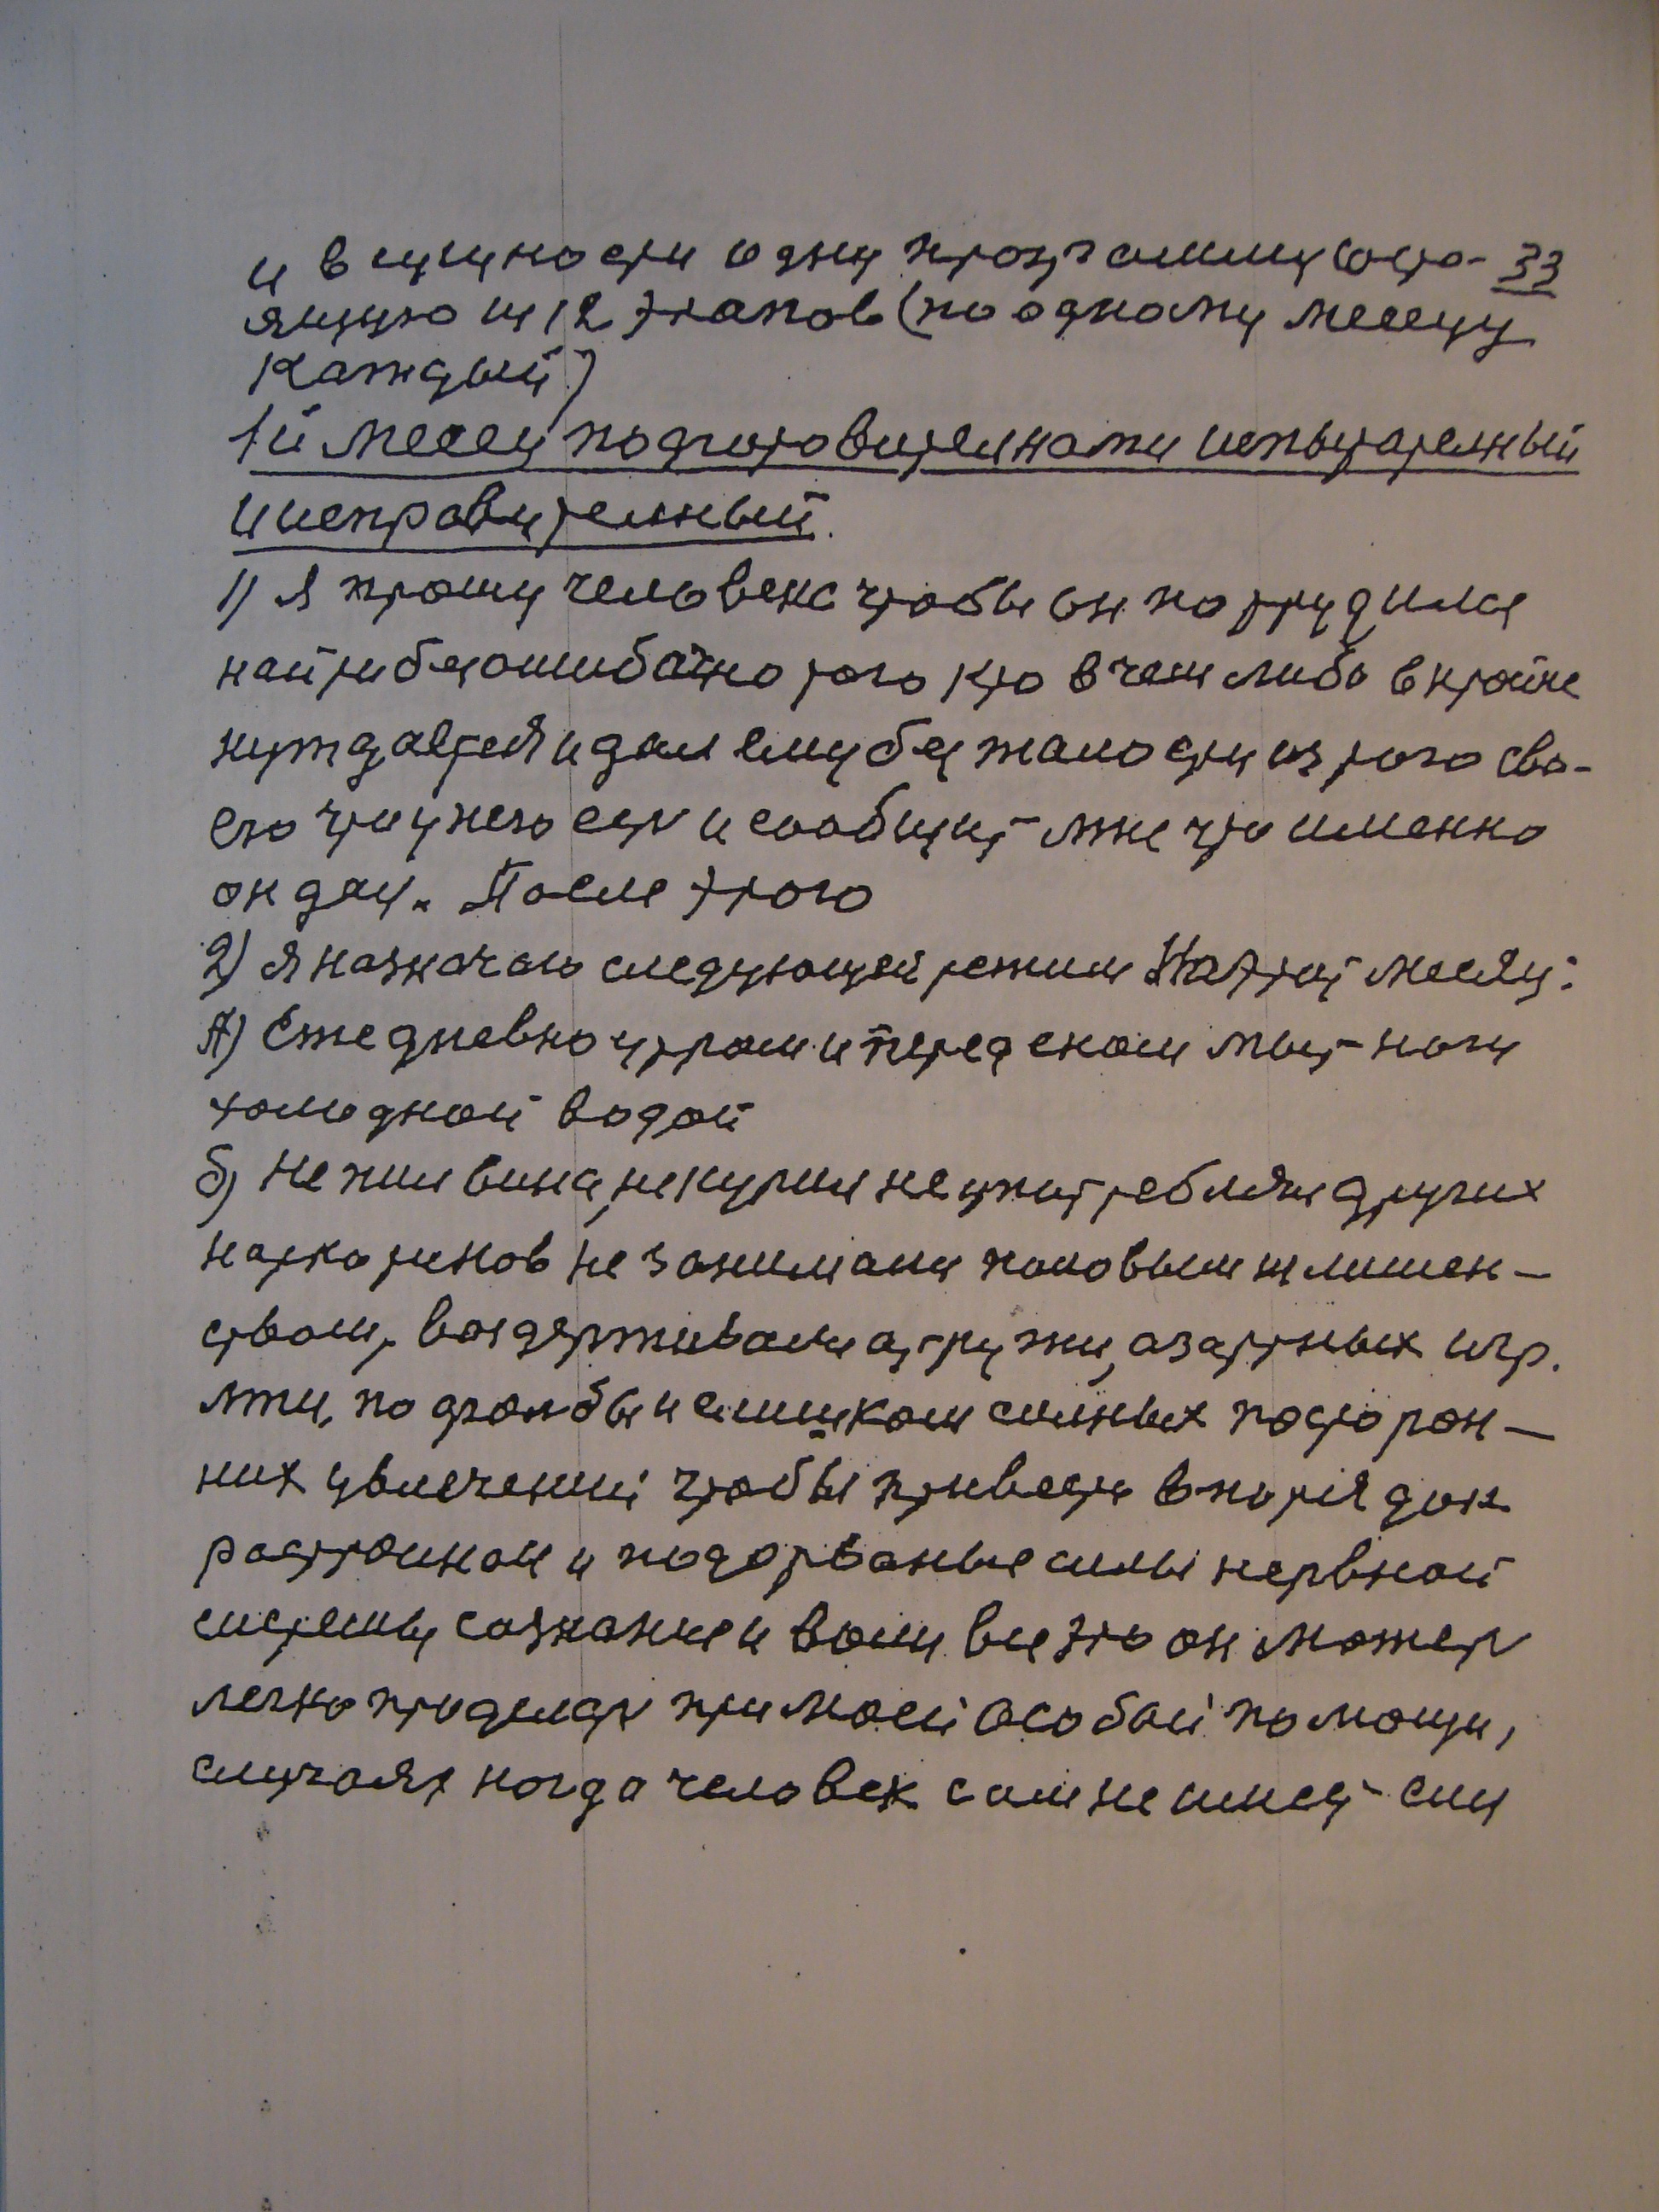 и в сущности одну программу состо- 33
ящую из 12 этапов (по одному месецу
каждый)
1й месец подготовителнами испытателный
и исправителный.
1) Я прошу человека чтобы он потрудился
найти безошибочно того кто в чем либо в крайне
нуждается и дал ему без жалости из того сво-
его что у него есть и сообщит мне что именно
он дал. После этого
2) Я назначаю следующей режим На этот месяц:
А) Ежедневно утром и перед сном мыт ноги
холодной водой
б) Не пил вина, не курил не употреблял других
наркотиков не занимался половым излишен-
ством, воздерживался от ружи, азартных игр.
лжи, по дракобы и слишком силных посторон-
них увлечений чтобы привести в порядок
растроиной и подорваные силы нервной
системы сознание и воли все это он может
легко проделать при моей особой помощи,
случаях когда человек сам не имеет сил